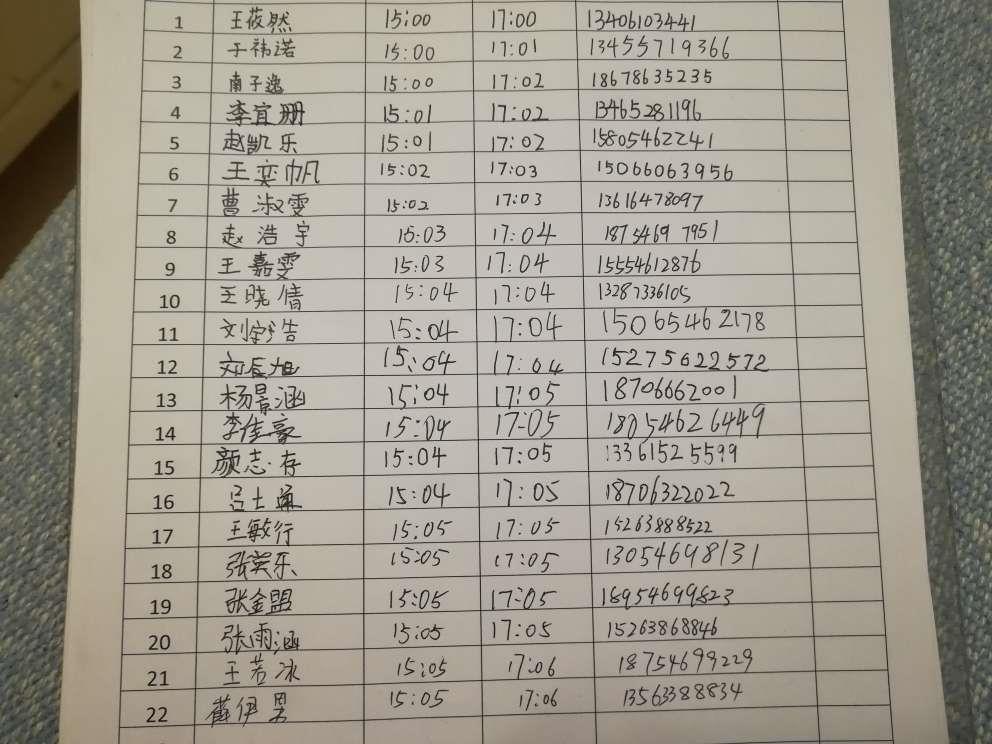 1 王莜然 15:00 17:00 13406103441
2 于祎诺 15:00 17:01 13455719366
3 南子逸 15:00 17:02 18678635235
4 李宜珊 15:01 17:02 13465281196
5 赵凯乐 15:01 17:02 15805462241
6 王奕帆 15:02 17:03 15066063956
7 曹淑雯 15:02 17:03 13616478097
8 赵浩宇 15:03 17:04 18754697951
9 王嘉雯 15:03 17:04 15554612876
10 王晓倩 15:04 17:04 13287336105
11 刘宇浩 15:04 17:04 15065462178
12 15:04 17:04 15275622572
13 杨景涵 15:04 17:05 18706662001
14 李佳豪 15:04 17:05 18054626449
15 颜志存 15:04 17:05 13361525599
16 吕士 15:04 17:05 18706322022
17 王敏行 15:05 17:05 15263888522
18 张笑乐 15:05 17:05 13054698131
19 张金盟 15:05 17:05 18954699823
20 张雨涵 15:05 17:05 15263868846
21 王若冰 15:05 17:06 18754699229
22 15:05 17:06 13563388834